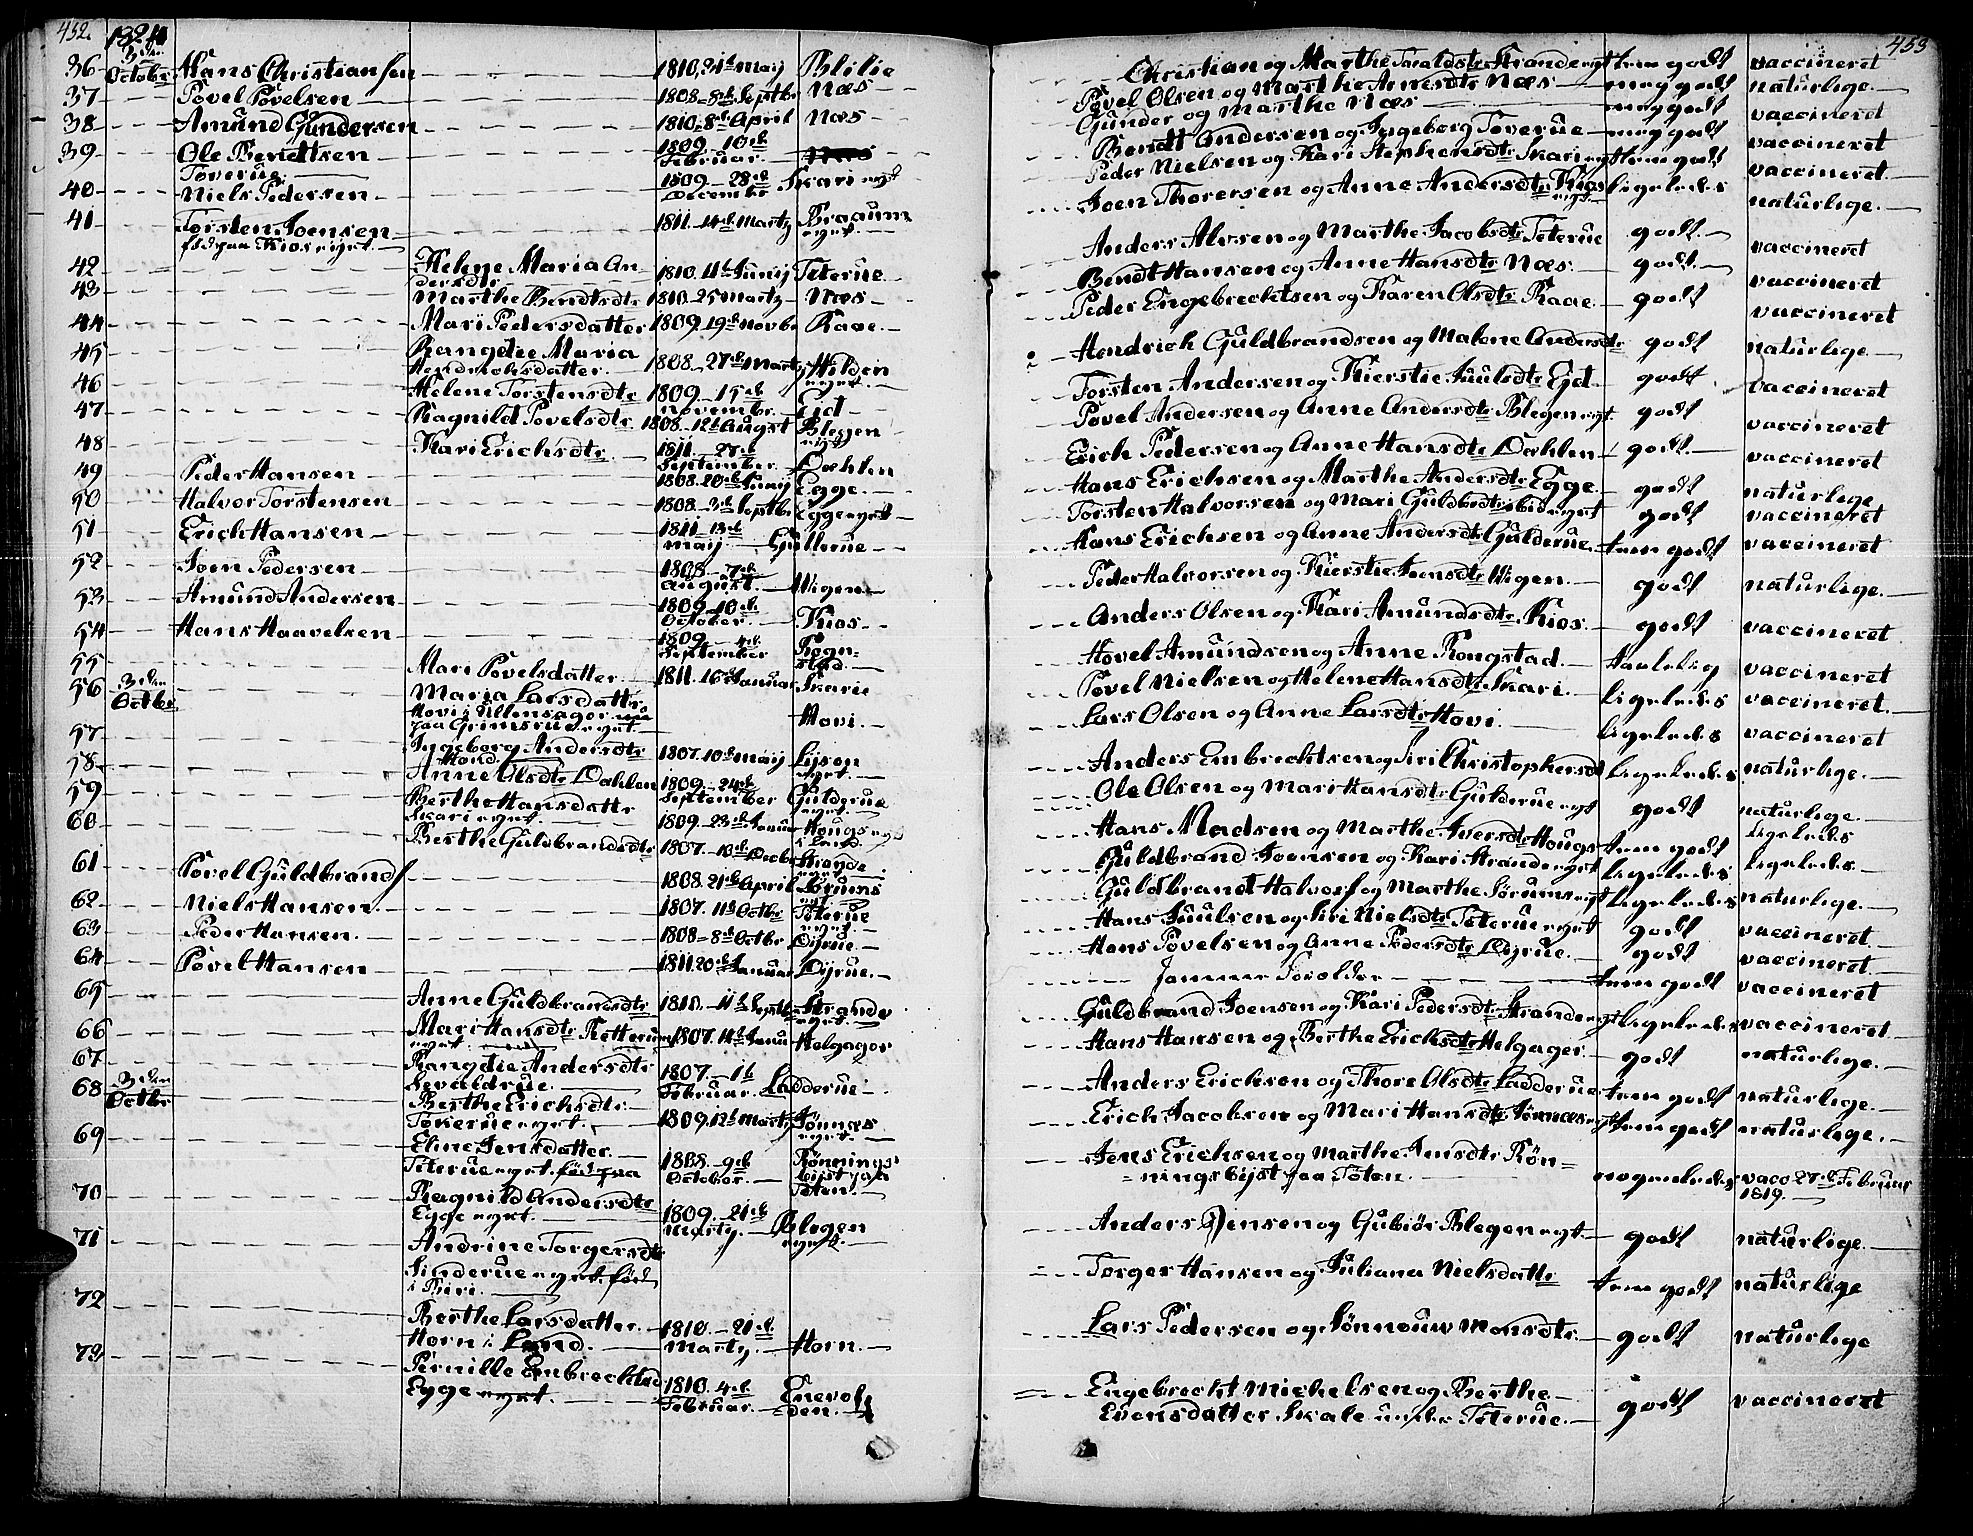 452.
1824
3die
36 Octobr Hans Christiansen 1810, 31t maij Blilie
37 Povel Povelsen 1808 - 8de Septbr Næs
38 Amund Gundersen 1810. 8de April Næs
39 Ole Bendtsen 1809. 10de
Toverüe. Februar.
40 Niels Pedersen 1809 - 28de Skari eyet
December
41 Torsten Joensen 1811. 14de Martz Braaum
fød paa Kios eyet. eyet.
42 Helene Maria An 1810. 11te Junij Teterüe
dersdtr
43 Marthe Bendtsdtr 1810. 25 martz Næs
44 Mari Pedersdatter 1809. 19de Novbr Kaae.
45 Rangdie Maria
Hendrichsdatter. 1808. 27de Martz Hilden
eyet.
46 Helene Torstensdtr 1809. 15de Eid
Novembr.
47 Ragnild Povelsdtr 1808. 12te Augst Blegen
eyet
48 Kari Erichsdtr 1811. 27de
September Dæhlen
49 Peder Hansen 1808. 20de Junij Egge.
50 Halvor Torstensen 1808. 3de Septbr Egge eyet
51 Erich Hansen 1811. 13de
maij Gullerüe
52 Joen Pedersen 1808. 7de
August. Wigen
53 Amund Andersen 1809. 10de
October. Kios
54 Hans Haavelsen 1809. 4de
September Rogn=
stad.
55 Mari Povelsdatter 1811. 16de Januar Skarie
56 3die Octbr Maria Larsdatter
Hovi i Ullensager
paa Grimsrud eyet. Hovi.
57 Ingeborg Andersdtr 1807. 10de maij Lijsen
eyet.
58 Anne Olsdtr Dæhlen 1809. 24de
September Gulderüe
eyet.
59 Berthe Hansdatter
Skari eyet. 1809. 23de Januar Hougs eyet
i Land.
60 Berthe Guldbrandsdtr 1807. 13de Decbr Strande
eyet.
61 Povel Guldbrands 1808. 21de April Sørums
eyet
62 Niels Hansen. 1807. 11te Octbr Teterüe
eyet.
63 Peder Hansen. 1808 - 8de Octbr Dijrüe.
64 Povel Hansen 1811. 20de Januar Dijrüe.
65 Anne Guldbrandsdtr 1810. 11te Septbr Strande
eyet.
66 Mari Hansdtr Rotterum 1807. 14de Janu Helgager
67 Rangdie Andersdtr
Sevaldrüe. 1807. 1te
Februar. Ladderüe
68 3die Octbr Berthe Erichsdtr.
Tokerüe eyet. 1809. 12te Martz Jønnæs
eyet.
69 Eline Jensdatter.
Teterüe eyet. fød paa 1808. 9de
October. Rønnings
bijst paa
Toten.
70 Ragnild Andersdtr
Egge eyet. 1809. 21de
Martz. Blegen
eyet.
71 Andrine Torgersdtr
Sinderüe eyet. fød
i Biri.
72 Berthe Larsdatter.
Horn i Land. 1810. 21de
Martz. Horn.
73 Pernille Embrechtsd
Egge eyet. 1810. 4de
Februar. Enevol
den.
453
Christian og Marthe Taraldsdtr Strande eyet tem godt vaccineret
Povel Olsen og Marthe Arnesdtr Næs meg godt naturlige.
Gunder og Marthe Næs meg godt vaccineret
Bendt Andersen og Ingeborg Toverüe meg godt vaccineret
Peder Nielsen og Kari Stephensdtr Skari eyet tem godt vaccineret.
Joen Thorersen og Anne Andersdtr Kios ligeledes naturlige.
eyet.
Anders Alvsen og Marthe Jacobsdtr Teterüe godt. vaccineret
Bendt Hansen og Anne Hansdtr Næs. godt. vaccineret
Peder Engebrechtsen og Karen Olsdtr Kaae. godt vaccineret
Hendrich Guldbrandsen og Malene Andersdtr godt naturlige.
Torsten Andersen og Kierstie Juulsdtr Eid godt vaccineret
Povel Andersen og Anne Andersdtr Blegen eyet. godt vaccineret
Erich Pedersen og Anne Hansdtr Dæhlen godt. vaccineret
Hans Erichsen og Marthe Andersdtr Egge godt naturlige
Torsten Halvorsen og Mari Guldbrdtr ibid eyet godt vaccineret
Hans Erichsen og Anne Andersdtr Gulderüe tem godt vaccineret
Peder Halvorsen og Kierstie Joensdtr Wigen. godt naturlige.
Anders Olsen og Kari Amundsdtr Kios. godt vaccineret
Hovel Amundsen og Anne Rongstad. taalelig vaccineret
Povel Nielsen og Helene Hansdtr Skari. ligeledes vaccineret.
Lars Olsen og Anne Larsdtr Hovi. ligeledes vaccineret
Anders Embrechtsen og Siri Christophersdt ligeledes naturlige.
Ole Olsen og Mari Hansdtr Gulderüe eyet godt naturlige.
Hans Madsen og Marthe Iversdtr Hougs tem godt ligeledes
Guldbrand Joensen og Kari Strande eyet ligeledes ligeledes
Guldbrand Halvors og Marthe Sørums eyet ligeledes naturlige.
Hans Juulsen og Siri Nielsdtr Teterüe eyet godt vaccineret.
Hans Povelsen og Anne Pedersdtr Dijrüe. godt vaccineret.
Samme Forældre tem godt vaccineret
Guldbrand Joensen og Kari Pedersdtr Strande eyet ligeledes vaccineret
Hans Hansen og Berthe Erichsdtr Helgager godt naturlige.
Anders Erichsen og Thore Olsdtr Ladderüe tem godt naturlige.
Erich Jacobsen og Mari Hansdtr Jønnæs eyet tem godt naturlige.
Jens Erichsen og Marthe Amsdtr Røn=
ningsbijst paa Toten. nogenledes vacc. 27de Februar
1819.
Anders Jensen og Gubiør Blegen eyet godt naturlige.
Torger Hansen og Juliana Nielsdatter tem godt naturlige
Lars Pedersen og Sønnouw Monsdtr godt naturlige
Engebrecht Michelsen og Berthe
Evensdatter Skale under Teterüe. godt vaccineret